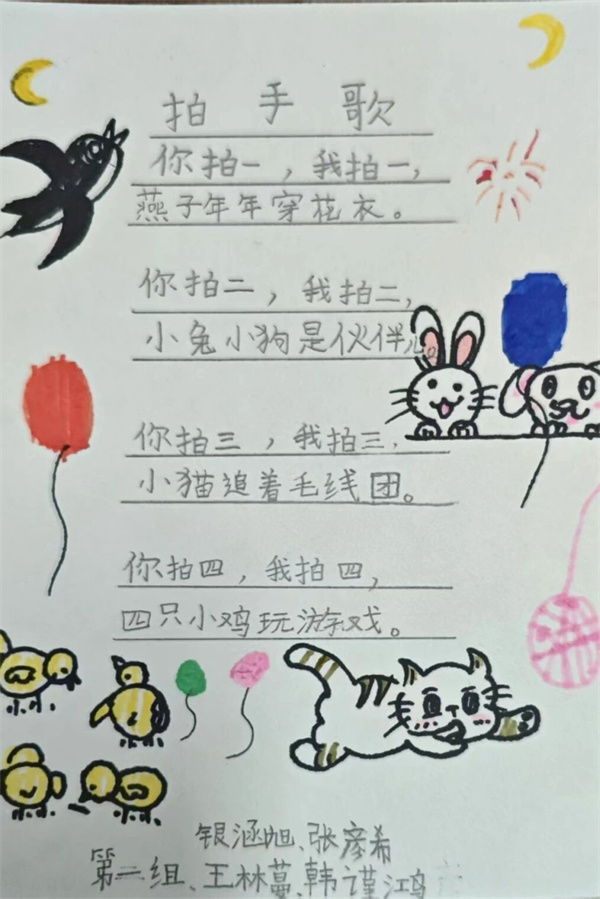 拍手歌
你拍一，我拍一，
燕子年年穿花衣。
你拍二，我拍二，
小兔小狗是伙伴儿。
你拍三，我拍三，
小猫追着毛线团。
你拍四，我拍四，
四只小鸡玩游戏。
银涵旭、张彦希
第二组、王林蔓、韩谨鸿